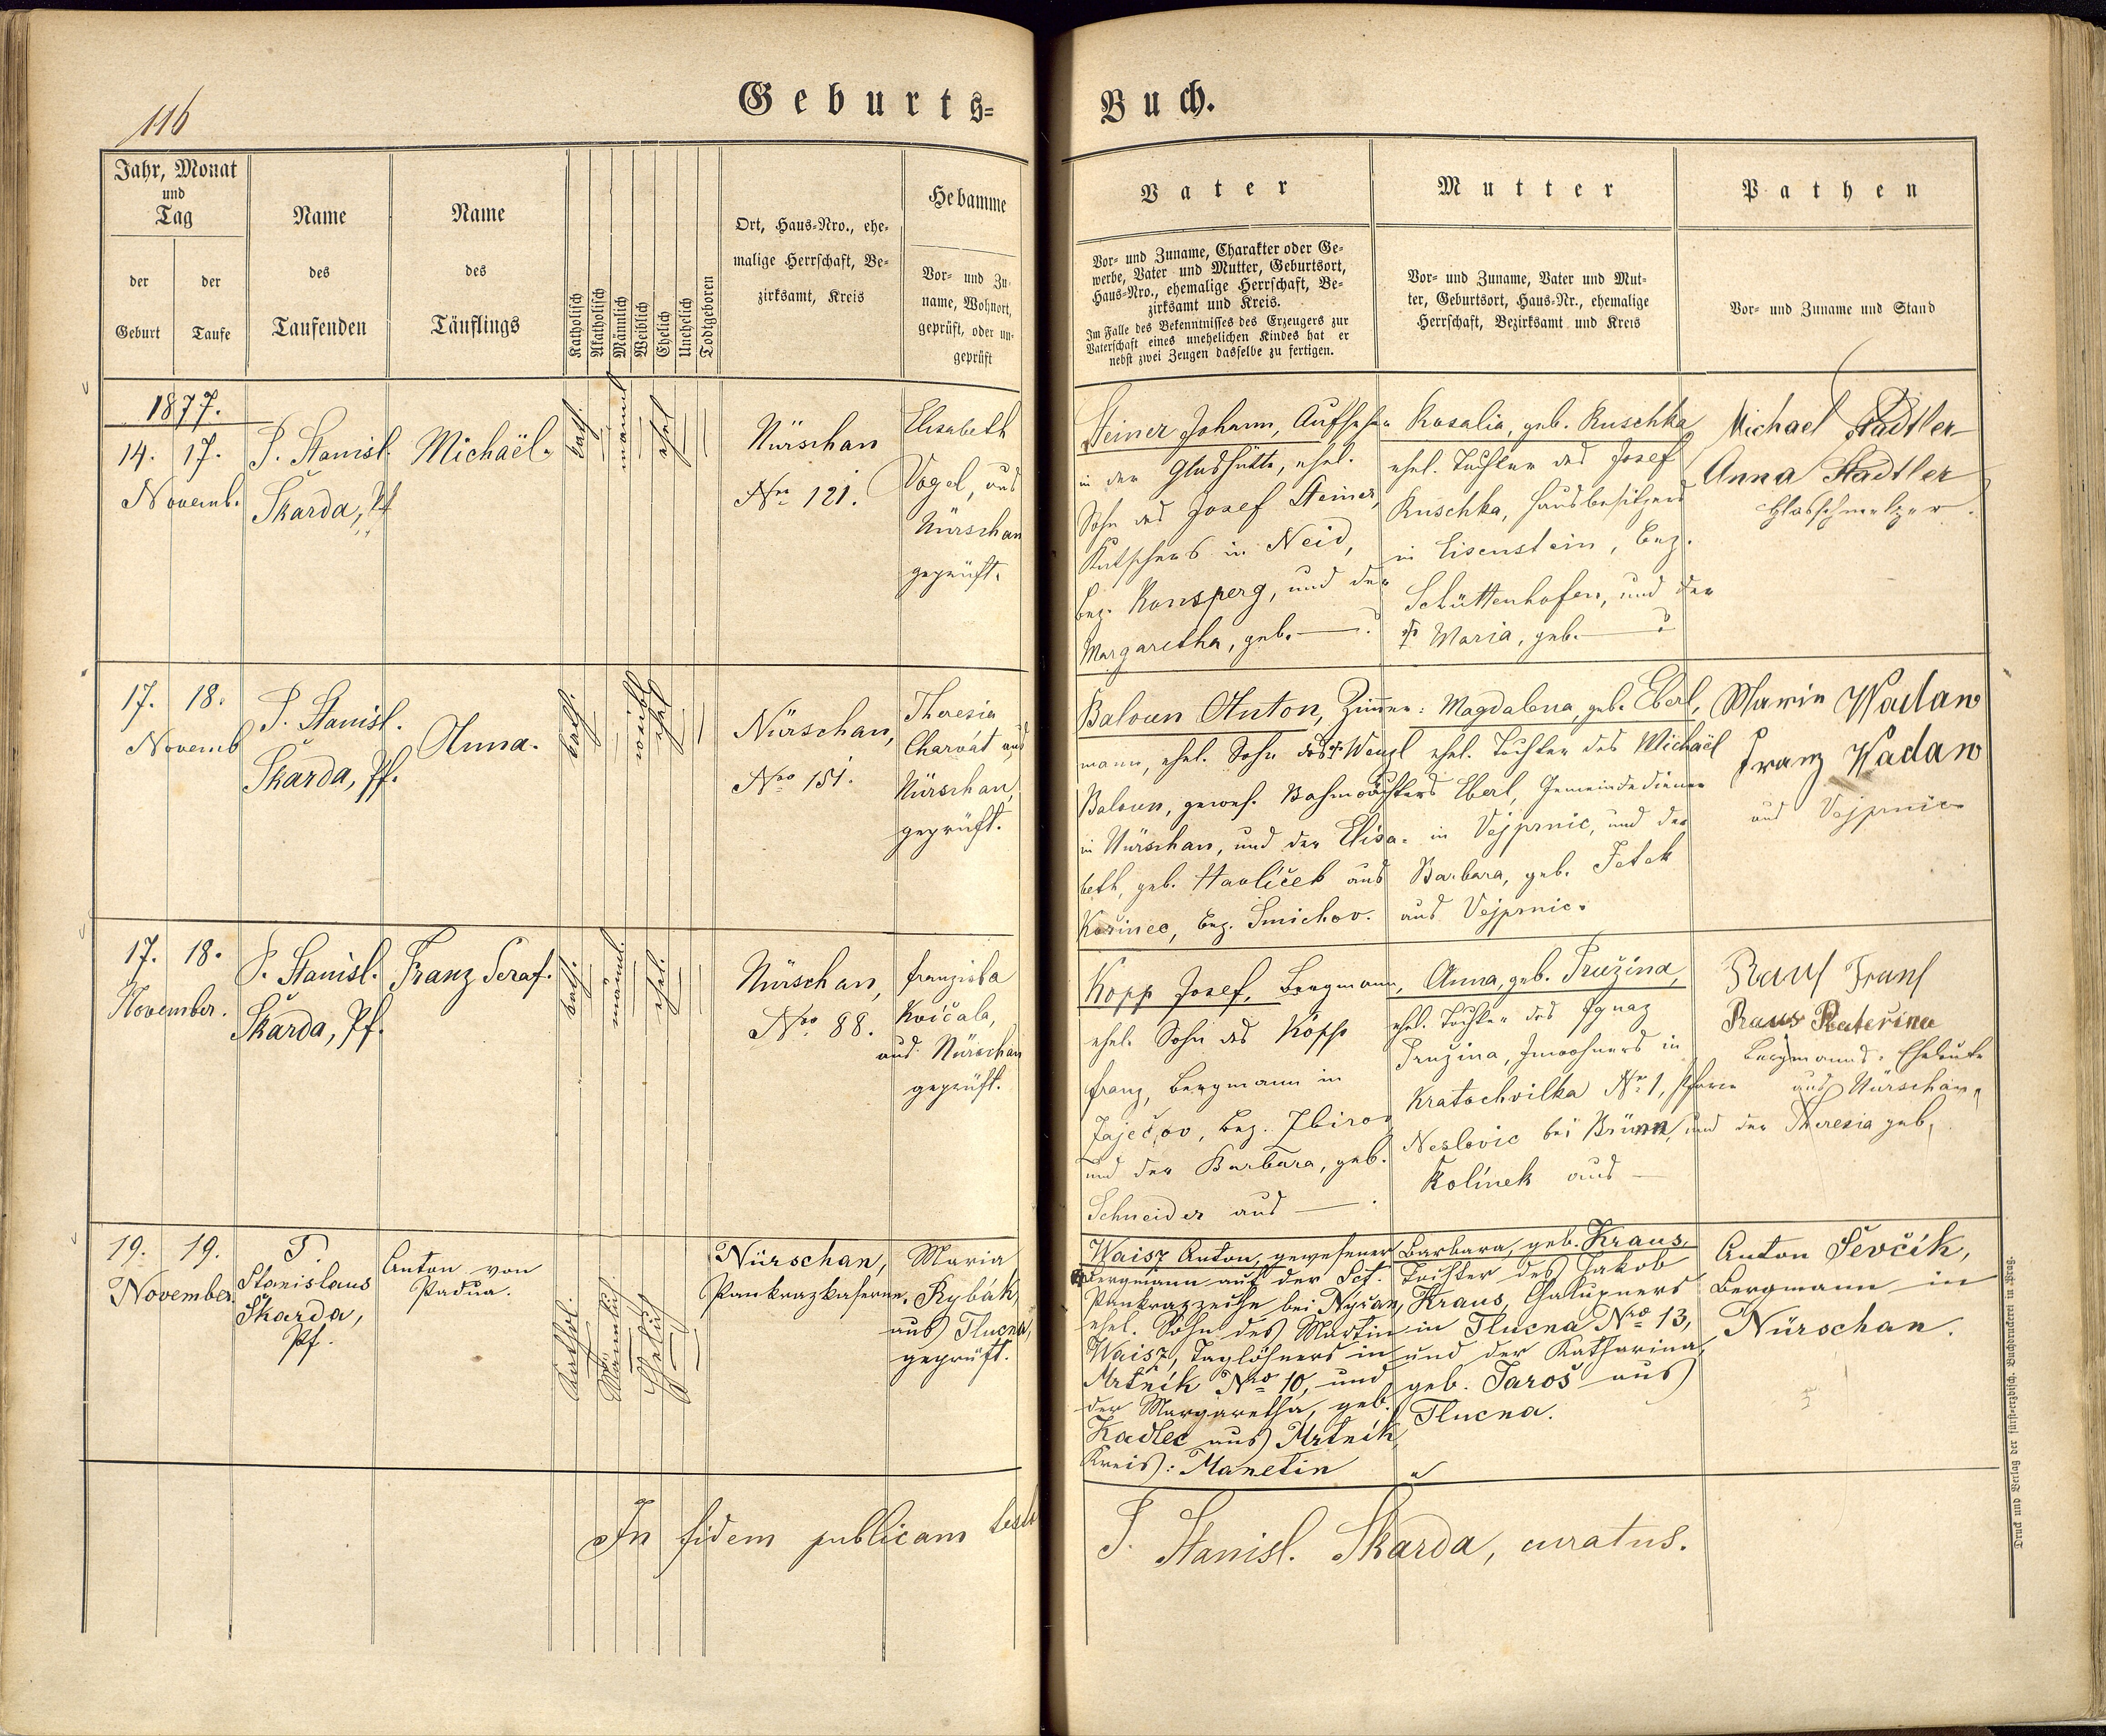 116
Geburts-
Buch.
Jahr, Monat
und
Tag
der
Geburt
der
Taufe
Name
des
Taufenden
Name
des
Täuflings
Katholisch
Akatholisch
Männlich
Weiblich
Ehelich
Unehelich
Todtgeboren
Ort, Haus-Nro., ehe-
malige Herrschaft, Be-
zirksamt, Kreis
Hebamme
Vor- und Zu-
name, Wohnort,
geprüft, oder un-
geprüft
Vater
Vor- und Zuname, Charakter oder Ge-
werbe, Vater und Mutter, Geburtsort,
Haus-Nro., ehemalige Herrschaft, Be-
zirksamt und Kreis.
Im Falle des Bekenntnisses des Erzeugers zur
Vaterschaft eines unehelichen Kindes hat er
nebst zwei Zeugen dasselbe zu fertigen.
Mutter
Vor- und Zuname, Vater und Mut-
ter, Geburtsort, Haus-Nr., ehemalige
Herrschaft, Bezirksamt und Kreis
Pathen
Vor- und Zuname und Stand
1877.
14. 17.
Novemb.
P. Stanisl.
Škarda, Pf
Michaël.
kath.
männl
ehel
Nürschan
Nro 121.
Elisabeth
Vogel, aus
Nürschan
geprüft.
Steiner Johann, Aufseher
in der Glashütte, ehel.
Sohn des Josef Steiner,
Kutschers in Neid,
Bez. Ronsperg, und der
Margaretha, geb. — ?
Rosalia, geb. Ruschka
ehel. Tochter des Josef
Ruschka, Hausbesitzers
in Eisenstein, Bez.
Schüttenhofen, und der
Maria, geb. — ?
Michael Stadtler
Anna Stadtler
Glasschmelzer.
17. 18.
Novemb
P. Stanisl.
Škarda, Pf.
Anna.
kath.
weibl
ehel
Nürschan,
Nro 151.
Theresia
Charvát aus
Nürschan,
geprüft.
Baloun Anton, Zimmer-
mann, ehel. Sohn des † Wenzl
Baloun, gewes. Bahnwächters
in Nürschan, und der Elisa-
beth, geb. Havlíček aus
Kořinec, Bez. Smichov.
Magdalena, geb. Eberl,
ehel. Tochter des Michaël
Eberl, Gemeindediener
in Vejprnic, und der
Barbara, geb. Fetek
aus Vejprnic.
Marie Wadaw
Franz Wadaw
aus Vejprnic
17. 18.
November.
P. Stanisl.
Škarda, Pf.
Franz Seraf.
kath.
männl.
ehel.
Nürschan,
Nro 88.
Franziska
Kvíčala,
aus Nürschan
geprüft.
Kopp Josef, Bergmann,
ehel. Sohn des Köpp
Franz, Bergmann in
Jaječov, Bez. Zbirov
und der Barbara, geb.
Schneider aus — .
Anna, geb. Pružina,
ehel. Tochter des Ignaz
Pružina, Inwohners in
Kratochvilka Nr. 1, Pfarre
Neslovic bei Brünn, und der Theresia geb.
Kolínek aus —
Raus Frans
Raus Kateřina
Bergmanns-Eheleute
aus Nürschan.
19. 19.
November.
P.
Stanislaus
Škarda,
Pf.
Anton von
Padua.
Kathol.
Männlich
Ehelich
Nürschan,
Pankrazkaserne.
Maria
Rybák,
aus Tlucna,
geprüft.
Waisz Anton, gewesener
Bergmann auf der Sct.
Pankrazzeche bei Nýřan,
ehel. Sohn des Martin
Waisz, Taglöhners in
Mrtník Nro 10, und
der Margaretha, geb.
Kadlec aus Mrtník,
Kreis: Manetin
Barbara, geb. Kraus,
Tochter des Jakob
Kraus, Chalupners
in Tlucna Nro 13,
und der Katharina,
geb. Jaroš aus
Tlucna.
Anton Ševčík,
Bergmann in
Nürschan.
In fidem publicam
P. Stanisl. Škarda, curatus.
Druck und Verlag der fürst-erzbisch. Buchdruckerei in Prag.